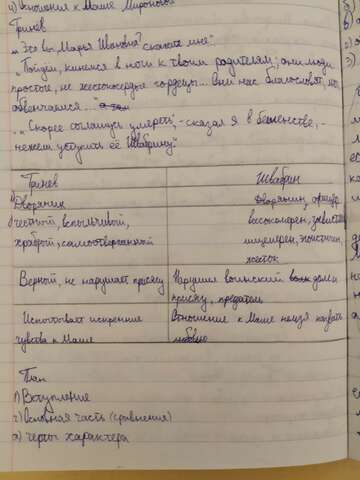 4) отношения к Маше Мироновой
Гринев
„Это вы, Марья Ивановна? скажите мне"
„Пойдём, кинемся в ноги к твоим родителям; они люди
простые, не жестокосердые гордецы... Они нас благословят, мы
обвенчаемся..."
„Скорее соглашусь умереть", - сказал я в бешенстве, -
нежели уступить её Швабрину"
Гринев
Швабрин
Дворянин
Дворянин, офицер
честный, вспыльчивый,
высокомерен, завистлив
храбрый, самоотверженный
лицемерен, эгоистичен,
жесток
Верный, не нарушает присягу
Нарушил воинский долг и
присягу, предатель
Испытывает искренние
Отношение к Маше нельзя назвать
чувства к Маше
любовью
План
1) Вступление
2) Основная часть (сравнения)
а) черты характера